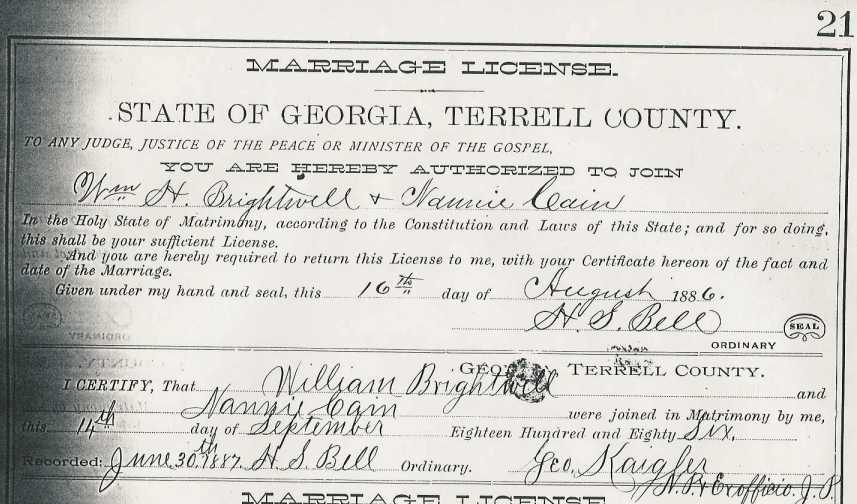 21
MARRIAGE LICENSE.
STATE OF GEORGIA, TERRELL COUNTY.
TO ANY JUDGE, JUSTICE OF THE PEACE OR MINISTER OF THE GOSPEL,
YOU ARE HEREBY AUTHORIZED TO JOIN
Wm H. Brightwell & Nannie Cain
In the Holy State of Matrimony, according to the Constitution and Laws of this State; and for so doing,
this shall be your sufficient License.
And you are hereby required to return this License to me, with your Certificate hereon of the fact and
date of the Marriage.
Given under my hand and seal, this 16th day of August 1886.
H. S. Bell SEAL
ORDINARY
GEO TERRELL COUNTY.
I CERTIFY, That William Brightwell and
Nannie Cain were joined in Matrimony by me,
this 14th day of September Eighteen Hundred and Eighty Six.
Recorded: June 30th 1887. H. S. Bell Ordinary. Geo. Kaigler
N. P. & Exofficio J. P.
MARRIAGE LICENSE